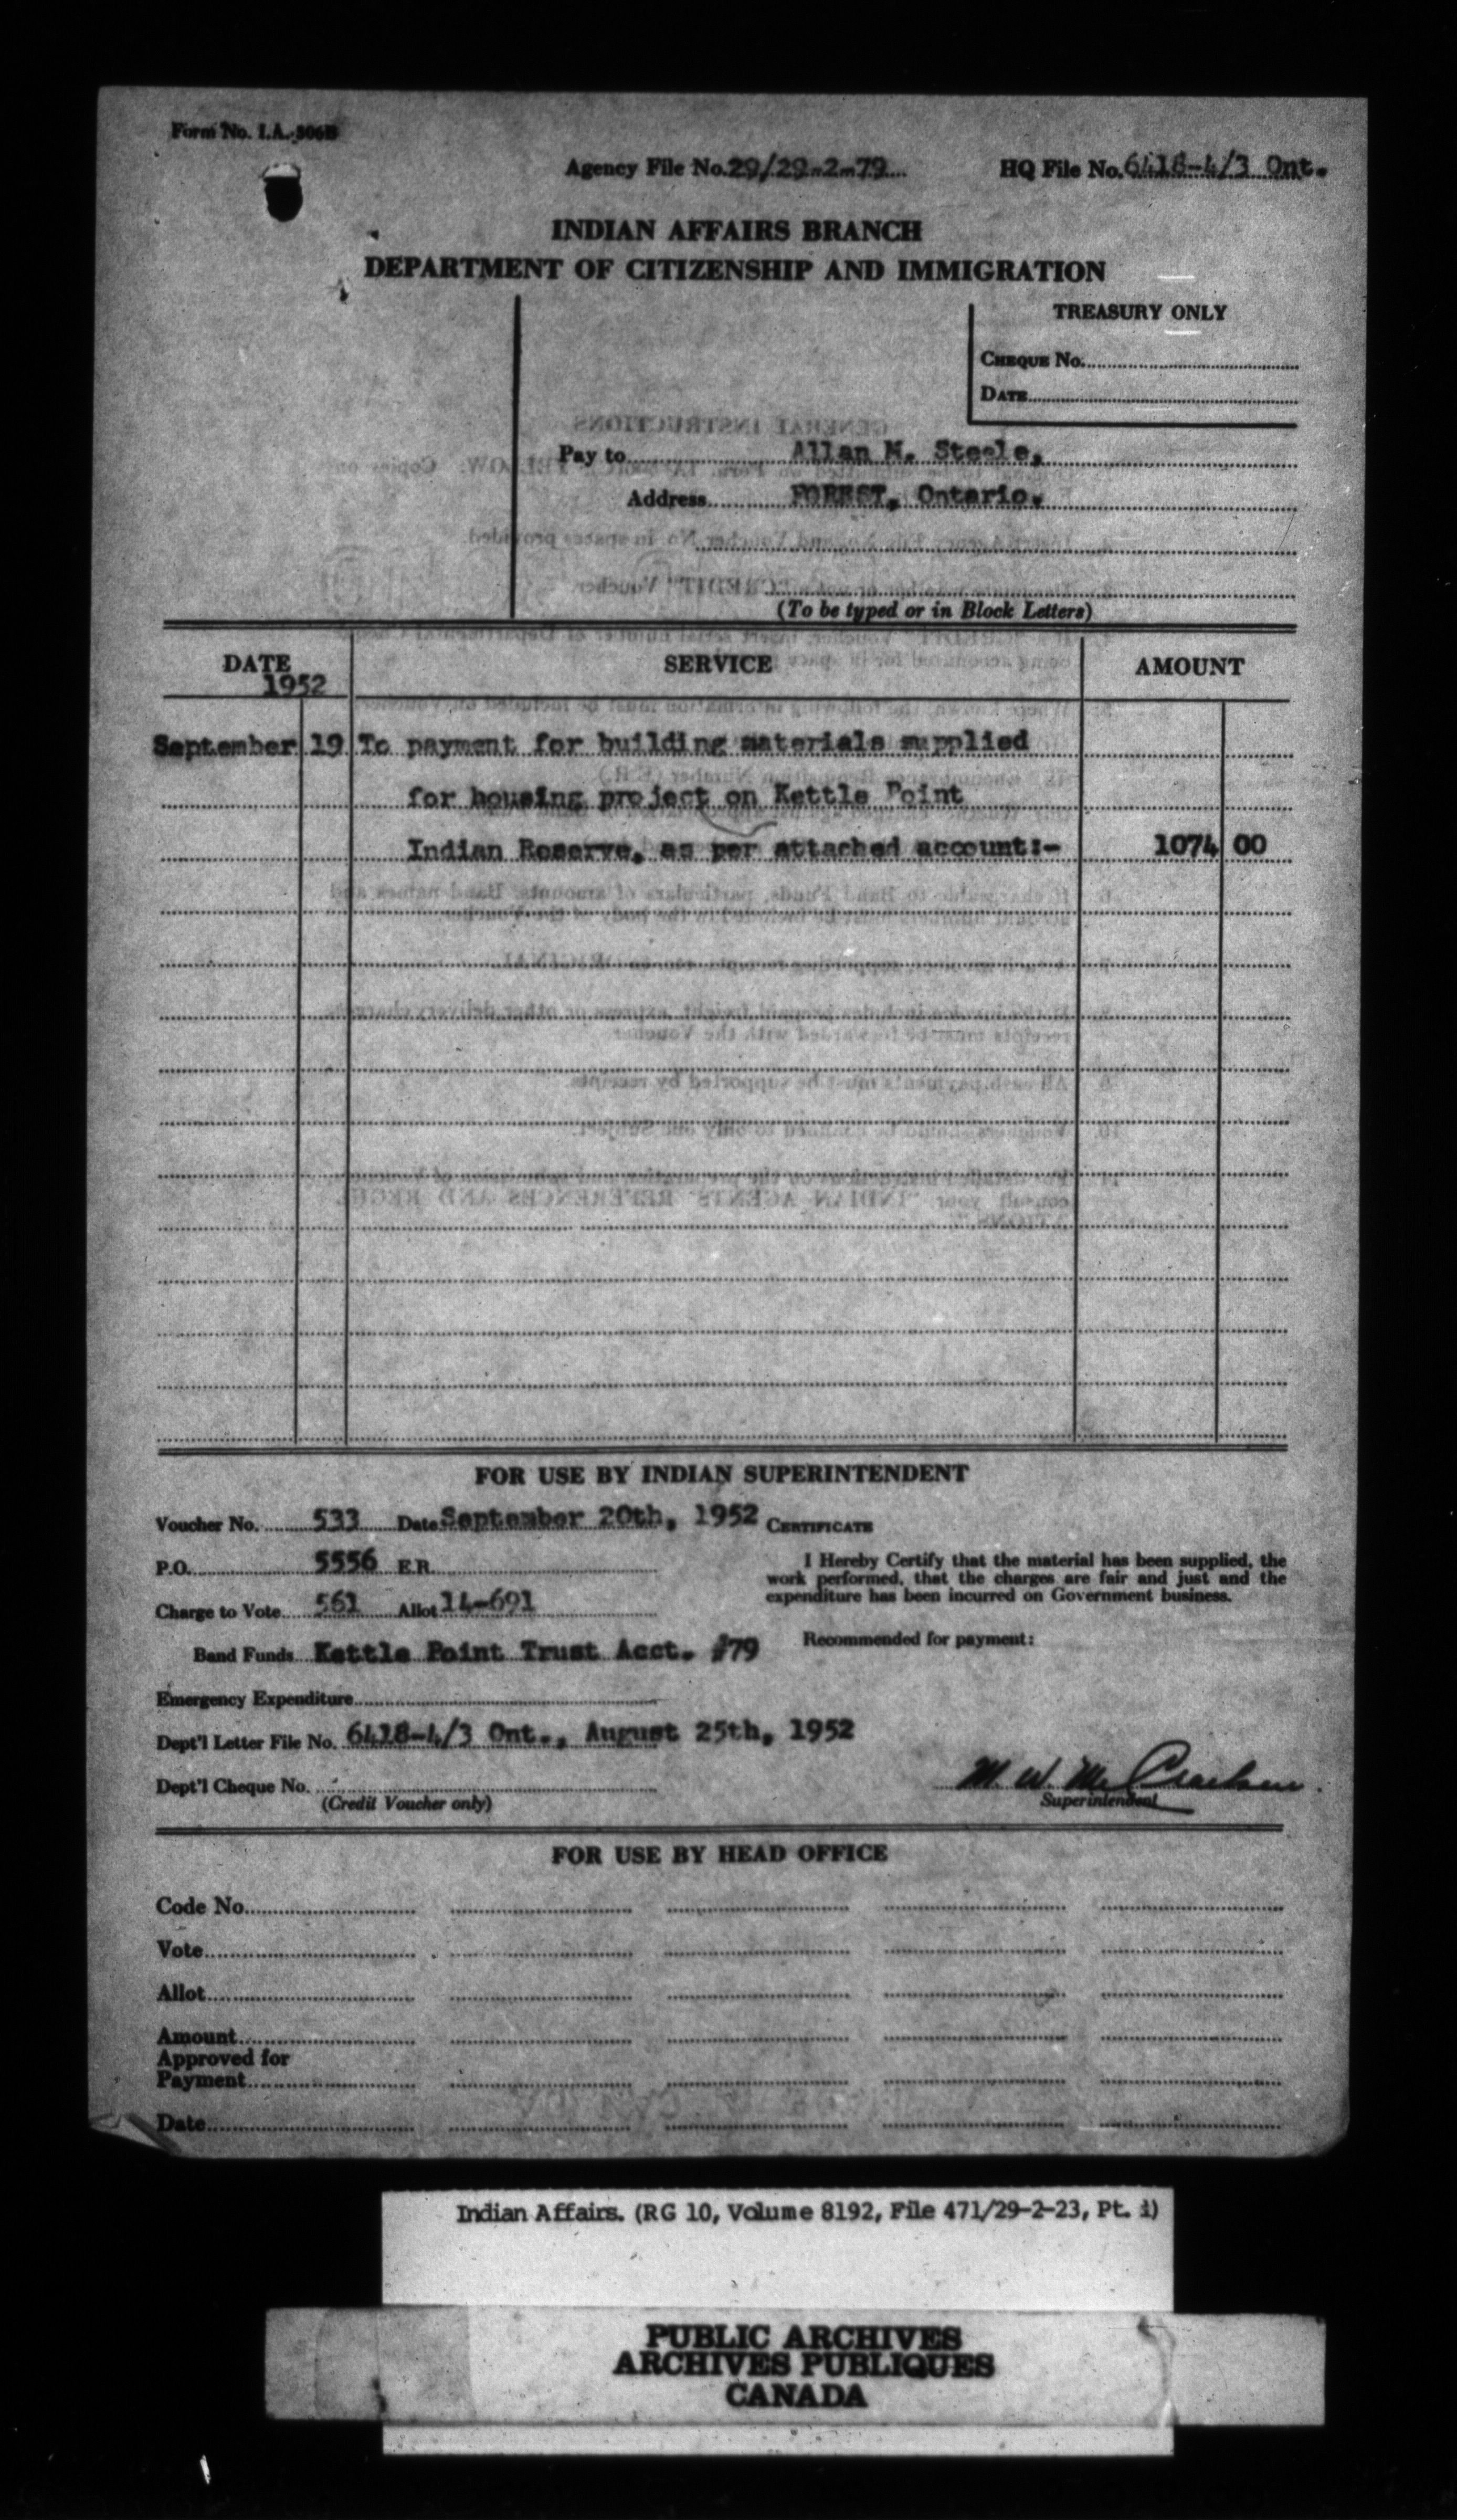 Form No. I.A.-306B
Agency File No. 29/29-2-79 HQ File No. 6418-4/3 Ont.
INDIAN AFFAIRS BRANCH
DEPARTMENT OF CITIZENSHIP AND IMMIGRATION
TREASURY ONLY
CHEQUE No.
DATE
Pay to Allan M. Steele,
Address FOREST, Ontario.
(To be typed or in Block Letters)
DATE SERVICE AMOUNT
1952
September 19 To payment for building materials supplied
for housing project on Kettle Point
Indian Reserve, as per attached account:- 1074 00
FOR USE BY INDIAN SUPERINTENDENT
Voucher No. 533 Date September 20th, 1952 CERTIFICATE
P.O. 5556 E.R. I Hereby Certify that the material has been supplied, the
work performed, that the charges are fair and just and the
expenditure has been incurred on Government business.
Charge to Vote 561 Allot 14-691
Band Funds Kettle Point Trust Acct. #79 Recommended for payment:
Emergency Expenditure
Dept'l Letter File No. 6418-4/3 Ont., August 25th, 1952
Dept'l Cheque No. M. W. McCracken
(Credit Voucher only) Superintendent
FOR USE BY HEAD OFFICE
Code No.
Vote
Allot
Amount
Approved for
Payment
Date
Indian Affairs. (RG 10, Volume 8192, File 471/29-2-23, Pt. 1)
PUBLIC ARCHIVES
ARCHIVES PUBLIQUES
CANADA